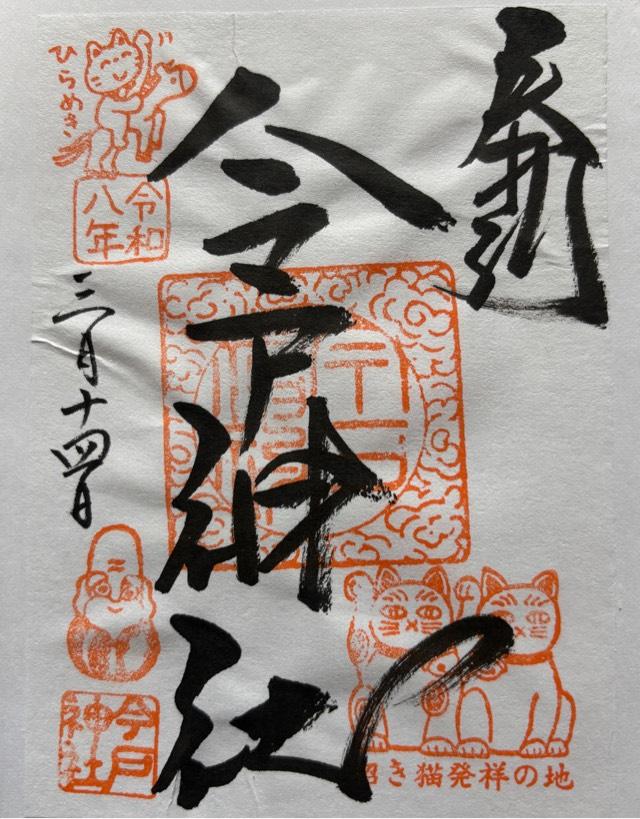 奉拝
今戸神社
ひらめき
令和
八年
三月十四日
今戸
神社
招き猫発祥の地